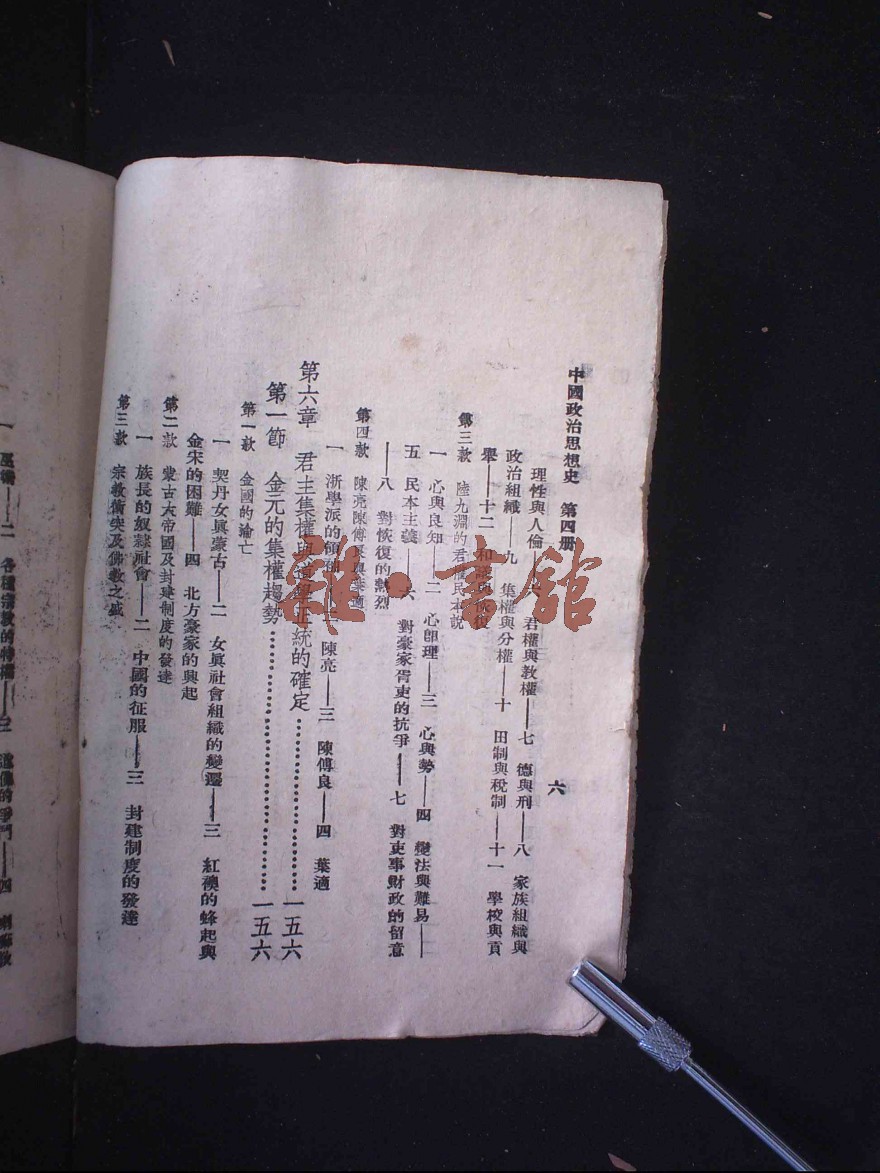 中國政治思想史 第四册
六
理性與人倫——六 君權與敎權——七 德與刑——八 家族組織與
政治組織——九 集權與分權——十 田制與稅制——十一 學校與貢
舉——十二 和議與恢復
第三款 陸九淵的君權民本說
一 心與良知——二 心卽理——三 心與勢——四 變法與難易——
五 民本主義——六 對豪家胥吏的抗爭——七 對吏事財政的留意
——八 對恢復的熱烈
第四款 陳亮陳傅良與葉適
一 浙學派的領袖——二 陳亮——三 陳傅良——四 葉適
第六章 君主集權與道學正統的確定……一五六
第一節 金元的集權趨勢……一五六
第一款 金國的淪亡
一 契丹女眞蒙古——二 女眞社會組織的變遷——三 紅襖的蜂起與
金宋的困難——四 北方豪家的興起
第二款 蒙古大帝國及封建制度的發達
一 族長的奴隸社會——二 中國的征服——三 封建制度的發達
第三款 宗敎衝突及佛敎之盛
一 ——二 各種宗敎的特
雜·書館